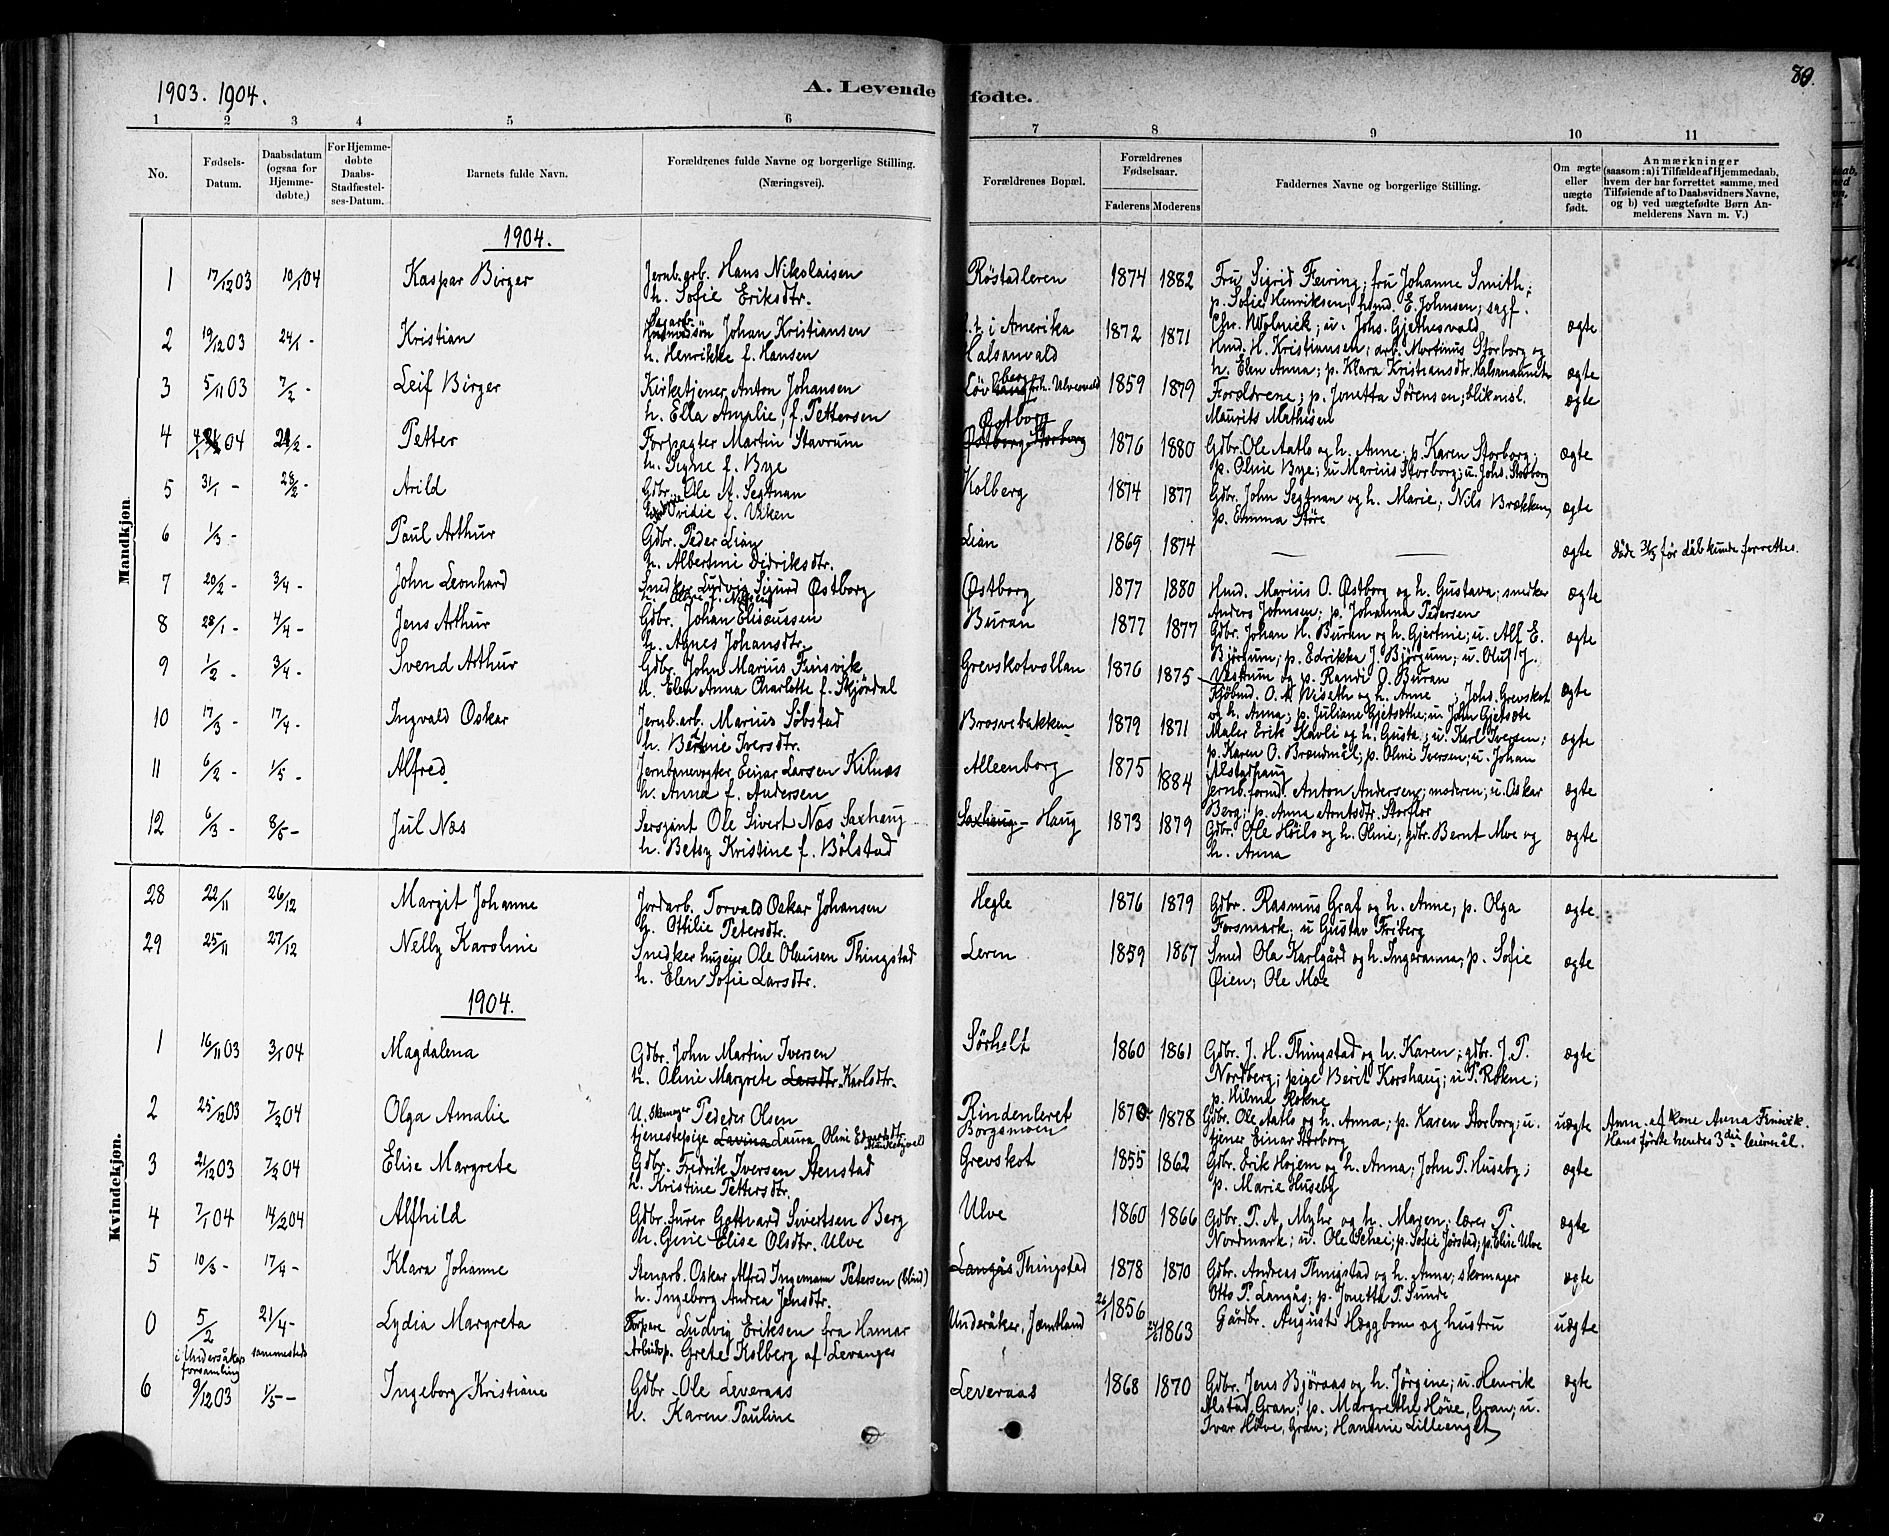 1903. 1904.
A. Levende fødte.
80.
1 2 3 4 5 6 7 8 9 10 11
No.
Fødsels-Datum.
Daabsdatum (ogsaa for Hjemme-døbte.)
For Hjemme-døbte Daabs-Stadfæstel-ses-Datum.
Barnets fulde Navn.
Forældrenes fulde Navne og borgerlige Stilling. (Næringsvei).
Forældrenes Bopæl.
Forældrenes Fødselsaar.
Faderens Moderens
Faddernes Navne og borgerlige Stilling.
Om ægte eller uægte født.
Anmærkninger
(saasom: a) i Tilfælde af Hjemmedaab,
hvem der har forrettet samme, med
Tilføiende af to Daabsvidners Navne,
og b) ved uægtefødte Børn An-
melderens Navn m. V.)
Mandkjøn.
1904.
1 17/12 03 10/1 04 Kaspar Birger Jernb.arb. Hans Nikolaisen Røstadleren 1874 1882 Fru Sigrid Feiring; fru Johanne Smith;
h. Sofie Eriksdtr. p. Sofie Henriksen; hmd. E. Johnsen; sagf.
Chr. Wolnick; u. Johs. Gjethesvald ægte
2 19/12 03 24/1 - Kristian Johan Kristiansen i Amerika 1872 1871
h. Henrikke f. Hansen Halsanvald Hmd. H. Kristiansen; arb. Martinus Storborg og
h. Elen Anna; p. Klara Kristiansdtr. ægte
3 5/11 03 7/2 - Leif Birger Kirketjener Anton Johansen 1859 1879 Forældrene; p. Jonetta Sørensen; blikensl. ægte
h. Ella Amalie, f. Pettersen Maurits Mathisen
4 04 Petter Forpagter Martin Stavrum Østborg 1876 1880 Gdbr. Ole Aatlo og h. Anne; p. Karen Storborg; ægte
h. Signe f. Bye p. Oline Bye; u Marius Storborg; u. Johs. Storborg
5 31/1 - 28/2 - Arild Gdbr. Ole A. Segtnan Kolberg 1874 1877 Gdbr. John Segtnan og h. Marie; Nils Brækken, ægte
f. Viken p. Emma Støre
6 1/3 - Paul Arthur Gdbr. Peder Lian Lian 1869 1874 — — ægte døde før dåb kunde forrettes.
h. Albertine Didriksdtr.
7 20/2 - 3/4 - John Leonhard Snedker Ludvig Sigurd Østborg Østborg 1877 1880 Hmd. Marius O. Østborg og h. Gustava; snedker ægte
Anders Johnsen; p. Johanna Pedersen
8 28/1 - 4/4 - Jens Arthur Gdbr. Johan Elisæussen Buran 1877 1877 Gdbr. Johan H. Buran og h. Gjertine; u. Alf E. ægte
h. Agnes Johansdtr. Bjørgum; p. Edrikka J. Bjørgum; u. Oluf J.
Vestrum og p. Randi O. Buran
9 1/2 - 3/4 - Svend Arthur Gdbr. John Marius Finsvik Grevskotvollan 1876 1875 Kjøbmd. O. A. Wiseth og h. Anne; Johs. Grevskot ægte
h. Elen Anna Charlotte f. Skjørdal og h. Anna; p. Juliane Gjetsethe; u. John Gjetsete
10 17/3 - 17/4 - Ingvald Oskar Jernb.arb. Marius Søbstad Brosvebakken 1879 1871 Maler Erik Havli og h. Gusta; u. Karl Iversen; ægte
h. Bertine Iversdtr. p. Karen O. Brændmål; p. Oline Iversen; u. Johan
Alstadhaug
11 6/2 - 1/5 - Alfred Jernbanevogter Einar Larsen Kilnæs Alleenborg 1875 1884 Jernb.formd. Anton Andersen; moderen; u. Oskar ægte
h. Anna f. Andersen Berg; p. Anne Arntsdtr. Storflor
12 6/3 - 8/5 - Jul Næs Sersjant Ole Sivert Næs Saxhaug Saxhaug - Haug 1873 1879 Gdbr. Ole Høilo og h. Oline; gdbr. Bernt Moe og ægte
h. Betsy Kristine f. Bølstad h. Anna
Kvindekjøn.
28 22/11 26/12 Margit Johanne Jordarb. Torvald Oskar Johansen Hegle 1876 1879 Gdbr. Rasmus Graf og h. Anne; p. Olga ægte
h. Ottilie Petersdtr. Forsmark; u Gustav Friberg
29 25/11 27/12 Nelly Karoline Snedker huseier Ole Olausen Thingstad Leren 1859 1867 Smed Ola Karlgård og h. Ingeranna; p. Sofie ægte
h. Elen Sofie Larsdtr. Øien; Ole Moe
1904.
1 16/11 03 3/1 04 Magdalena Gdbr. John Martin Iversen Sørholt 1860 1861 Gdbr. J. H. Thingstad og h. Karen; gdbr. J. P. ægte
h. Oline Margrete Larsdtr. Karlsdtr. Nordberg; pige Berit Korshaug; u P. Rokne;
p. Hilma Rokne
2 25/12 03 7/2 04 Olga Amalie U. skomager Peder Olsen Rindenleret 1878 Gdbr. Ole Aatlo og h. Anna; p. Karen Storborg; u. uægte Anm. af kone Anna Finsvik.
tjenestepige Lavina Laura Oline Borgsmoen tjener Einar Storborg Hans første hendes 3die leiermål.
3 21/12 03 7/2 04 Elise Margrete Gdbr. Fredrik Iversen Stenstad Grevskot 1855 1862 Gdbr. Erik Hojem og h. Anna; John P. Huseby; ægte
h. Kristine Pettersdtr. p. Marie Huseby
4 7/1 04 14/2 04 Alfhild Gdbr. Surer Gottvard Sivertsen Berg Ulve 1860 1866 Gdbr. P. A. Myhr og h. Maren; lærer P. ægte
h. Gine Elise Olsdtr. Ulve Nordmark; u. Ole Schei; p. Sofie Jørstad; p. Elise Ulve
5 10/3 - 17/4 - Klara Johanne Stenarb. Oskar Alfred Ingemann Petersen (blind) Langås Thingstad 1878 1870 Gdbr. Andreas Thingstad og h. Anna; skomager ægte
h. Ingeborg Andrea Jensdtr. Otto P. Langås; p. Jonetta P. Sunde
0 5/2 21/4 - Lydia Margreta Forpare Ludvig Eriksen fra Hamar Undersåker, Jæmtland 26/1 1856 1863 Gårdbr. August Hæggbom og hustru uægte
i Undersåkers forsamling sammesteds Arbeidsp. Grete Kolberg af Levanger
6 9/12 03 1/5 - Ingeborg Kristiane Gdbr. Ole Leveraas Leveraas 1868 1870 Gdbr. Jens Bjøraas og h. Jørgine; u. Henrik ægte
h. Karen Pauline Alstad, Gran; p. Margrethe Høve, Gran; u.
Ivar Høve, Gran; Hansine Lilleenget